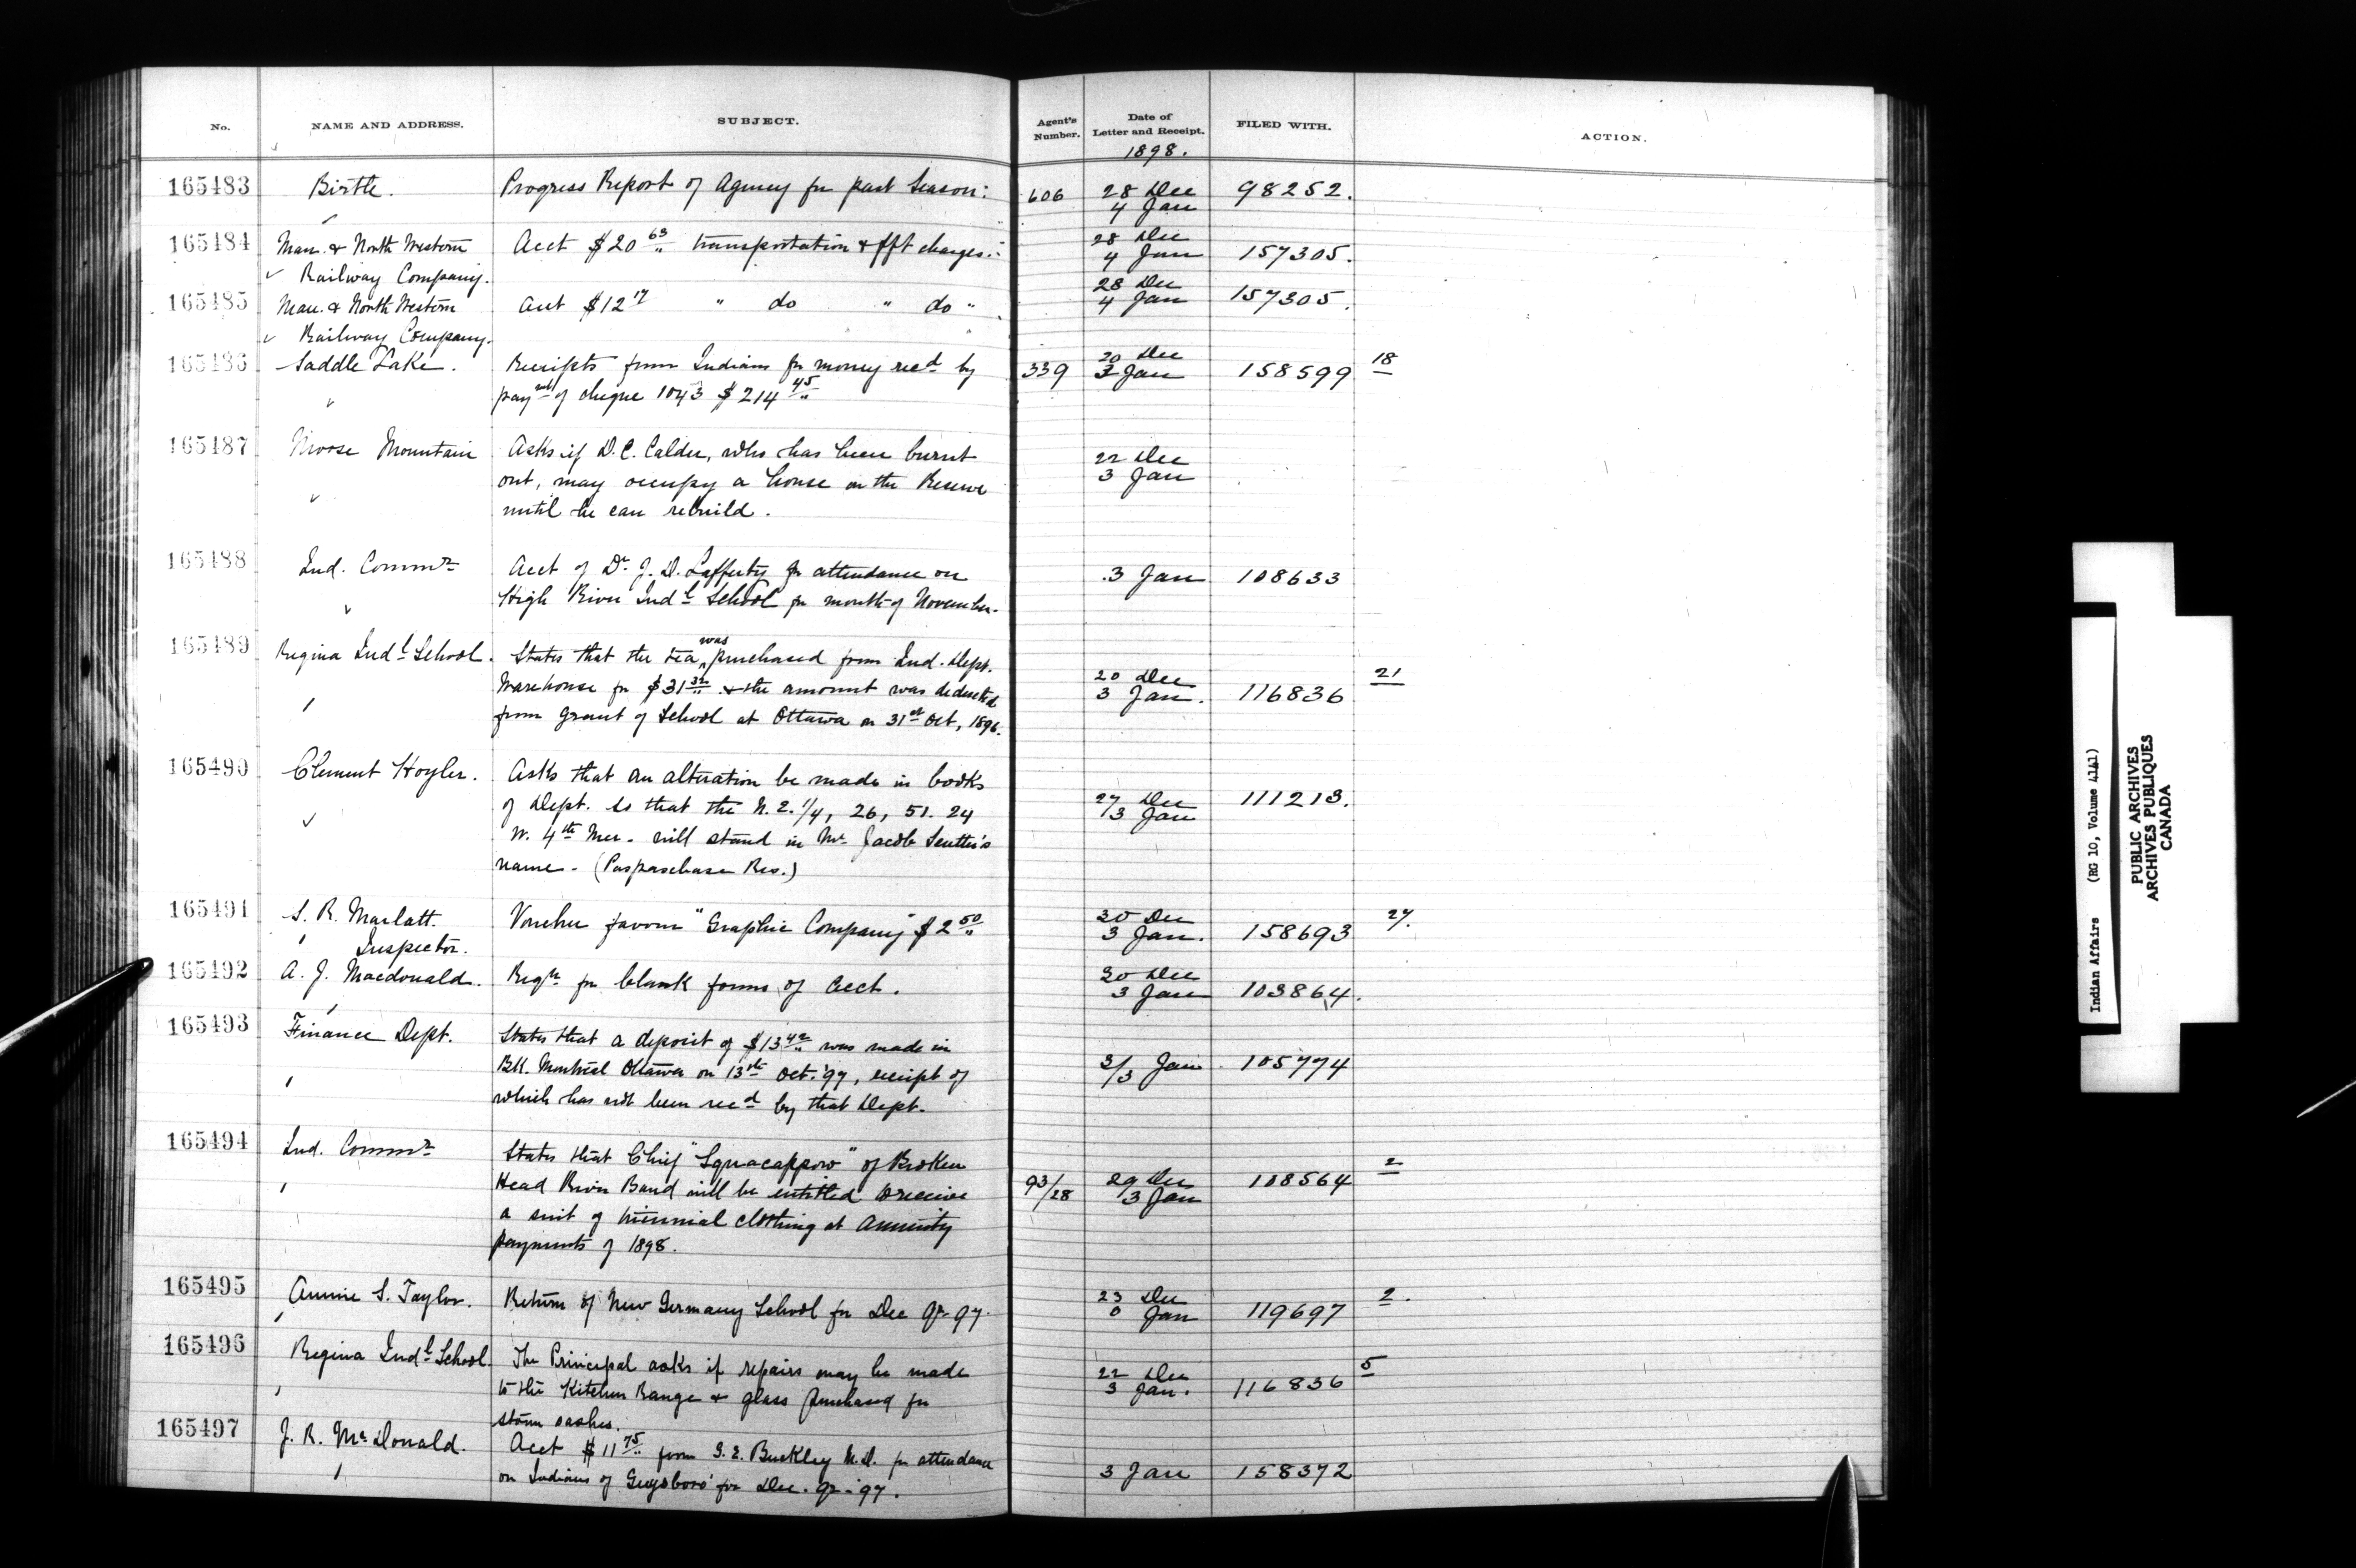 No.
NAME AND ADDRESS.
SUBJECT.
Agent's Number.
Date of Letter and Receipt.
FILED WITH.
ACTION.
1898.
165483 Birtle. Progress Report of Agency for past Season: 606 28 Dec 98252.
4 Jan
165484 Man. & North Western Acct $20 63 transportation & fft charges: 28 Dec
Railway Company. 4 Jan 157305.
165485 Man. & North Western Acct $12 17 " do " do " 28 Dec
Railway Company. 4 Jan 157305.
165486 Saddle Lake. Receipts from Indians for money recd by 339 20 Dec 158599 18
paymt of cheque 1043 $214 45 3 Jan
165487 Moose Mountain Asks if D. C. Calder, who has been burnt 22 Dec
out, may occupy a house on the Reserve 3 Jan
until he can rebuild.
165488 Ind. Commr Acct of Dr J. D. Lafferty for attendance on 3 Jan 108633
High River Indl School for month of November.
165489 Regina Indl School. States that the tea was purchased from Ind. Dept.
Warehouse for $31 32 & the amount was deducted 20 Dec 21
from grant of School at Ottawa on 31st Oct, 1896. 3 Jan. 116836
165490 Clement Hoyler. Asks that an alteration be made in books
of Dept. so that the N.E. 1/4, 26, 51. 24 27 Dec 111213.
W. 4th Mer. will stand in Mr Jacob Leuthi's 3 Jan
name. (Paspaschase Res.)
165491 S. R. Marlatt. Voucher favour "Graphic Company" $2 50 30 Dec 27.
Inspector. 3 Jan. 158693
165492 A. J. Macdonald. Reqn for blank forms of acct. 30 Dec
3 Jan 103864.
165493 Finance Dept. States that a deposit of $13 42 was made in
Bk. Montreal Ottawa on 13th Oct. '97, receipt of 3/3 Jan 105774
which has not been recd by that Dept.
165494 Ind. Commr States that Chief "Squacappow" of Broken 2
Head River Band will be entitled to receive 93/28 29 Dec 108564
a suit of triennial clothing at Annuity 3 Jan
payments of 1898.
165495 Annie S. Taylor. Return of New Germany School for Dec qr 97. 23 Dec 2.
0 Jan 119697
165496 Regina Indl School. The Principal asks if repairs may be made 22 Dec 5
to the Kitchen Range & glass purchased for 3 Jan. 116836
storm sashes.
165497 J. R. McDonald. Acct $11 75 from G. E. Buckley M.D. for attendance
on Indians of Guysboro' for Dec. qr. 97. 3 Jan 158372
Indian Affairs (RG 10, Volume 4141)
PUBLIC ARCHIVES
ARCHIVES PUBLIQUES
CANADA